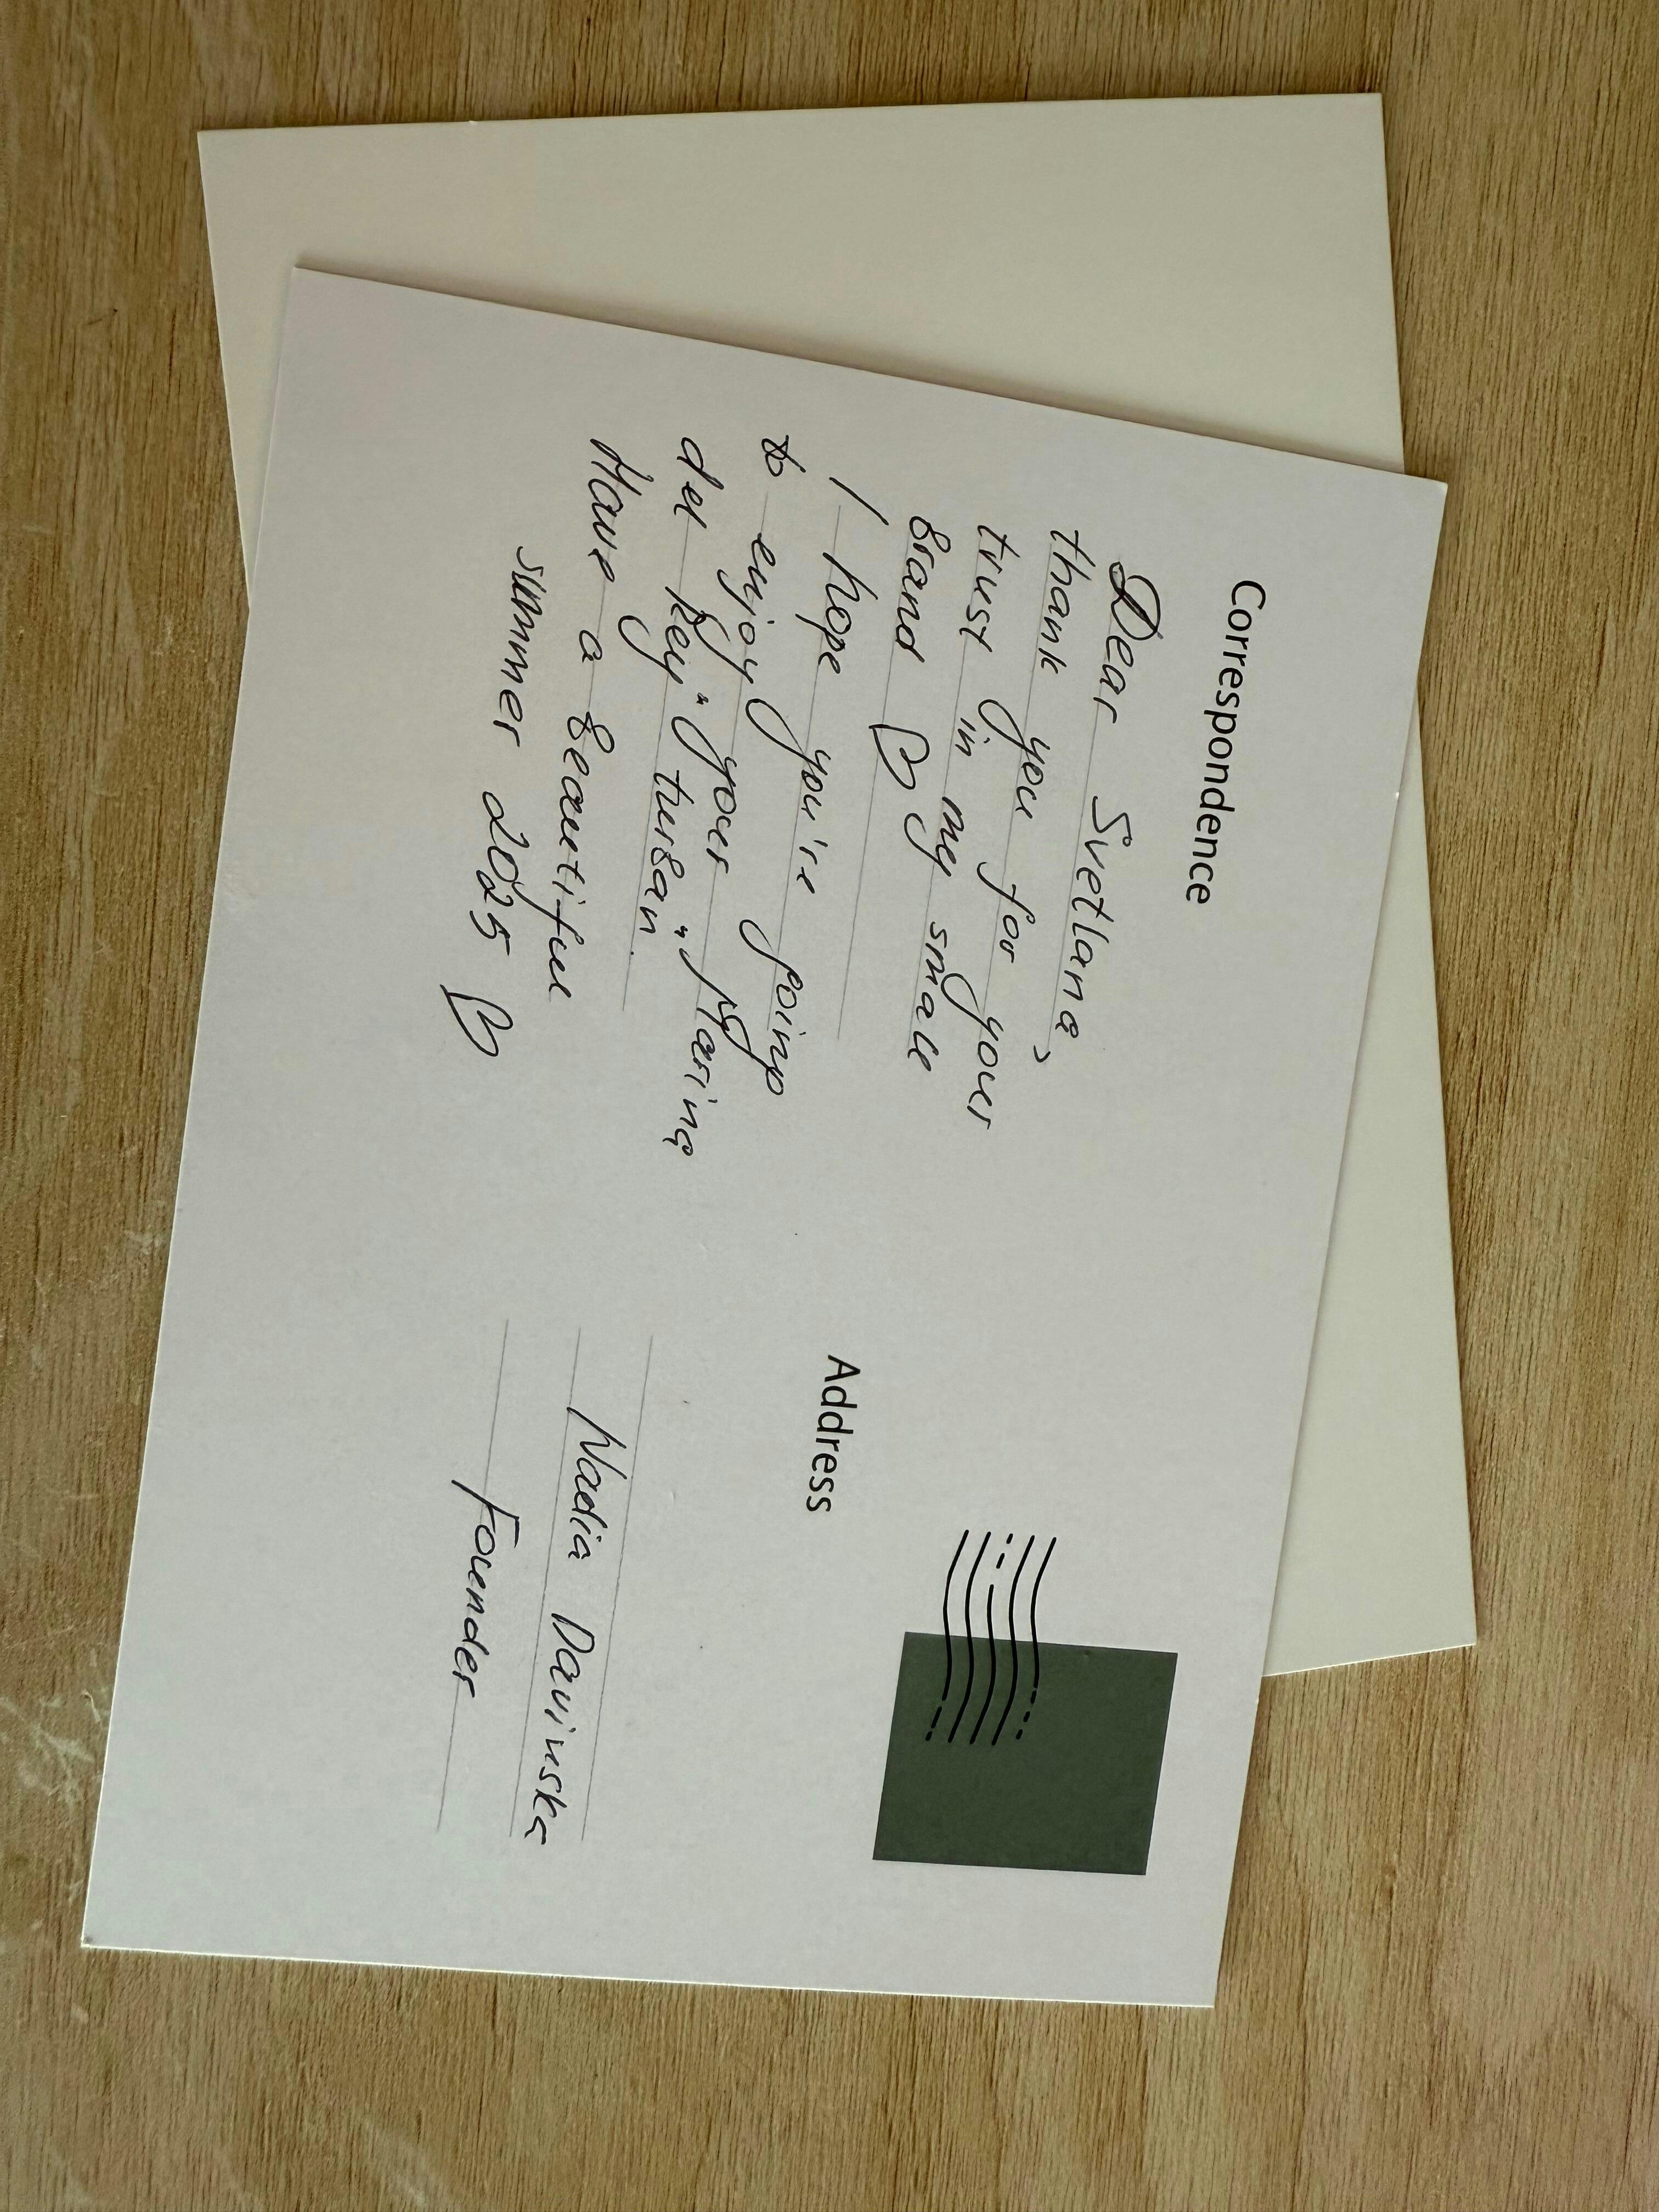 Correspondence
Dear Svetlana,
thank you for your
trust in my small
brand ♡
I hope you're going
to enjoy your „Marina
del Rey" turban.
Have a beautiful
summer 2025 ♡
Address
Nadia Davinska
Founder